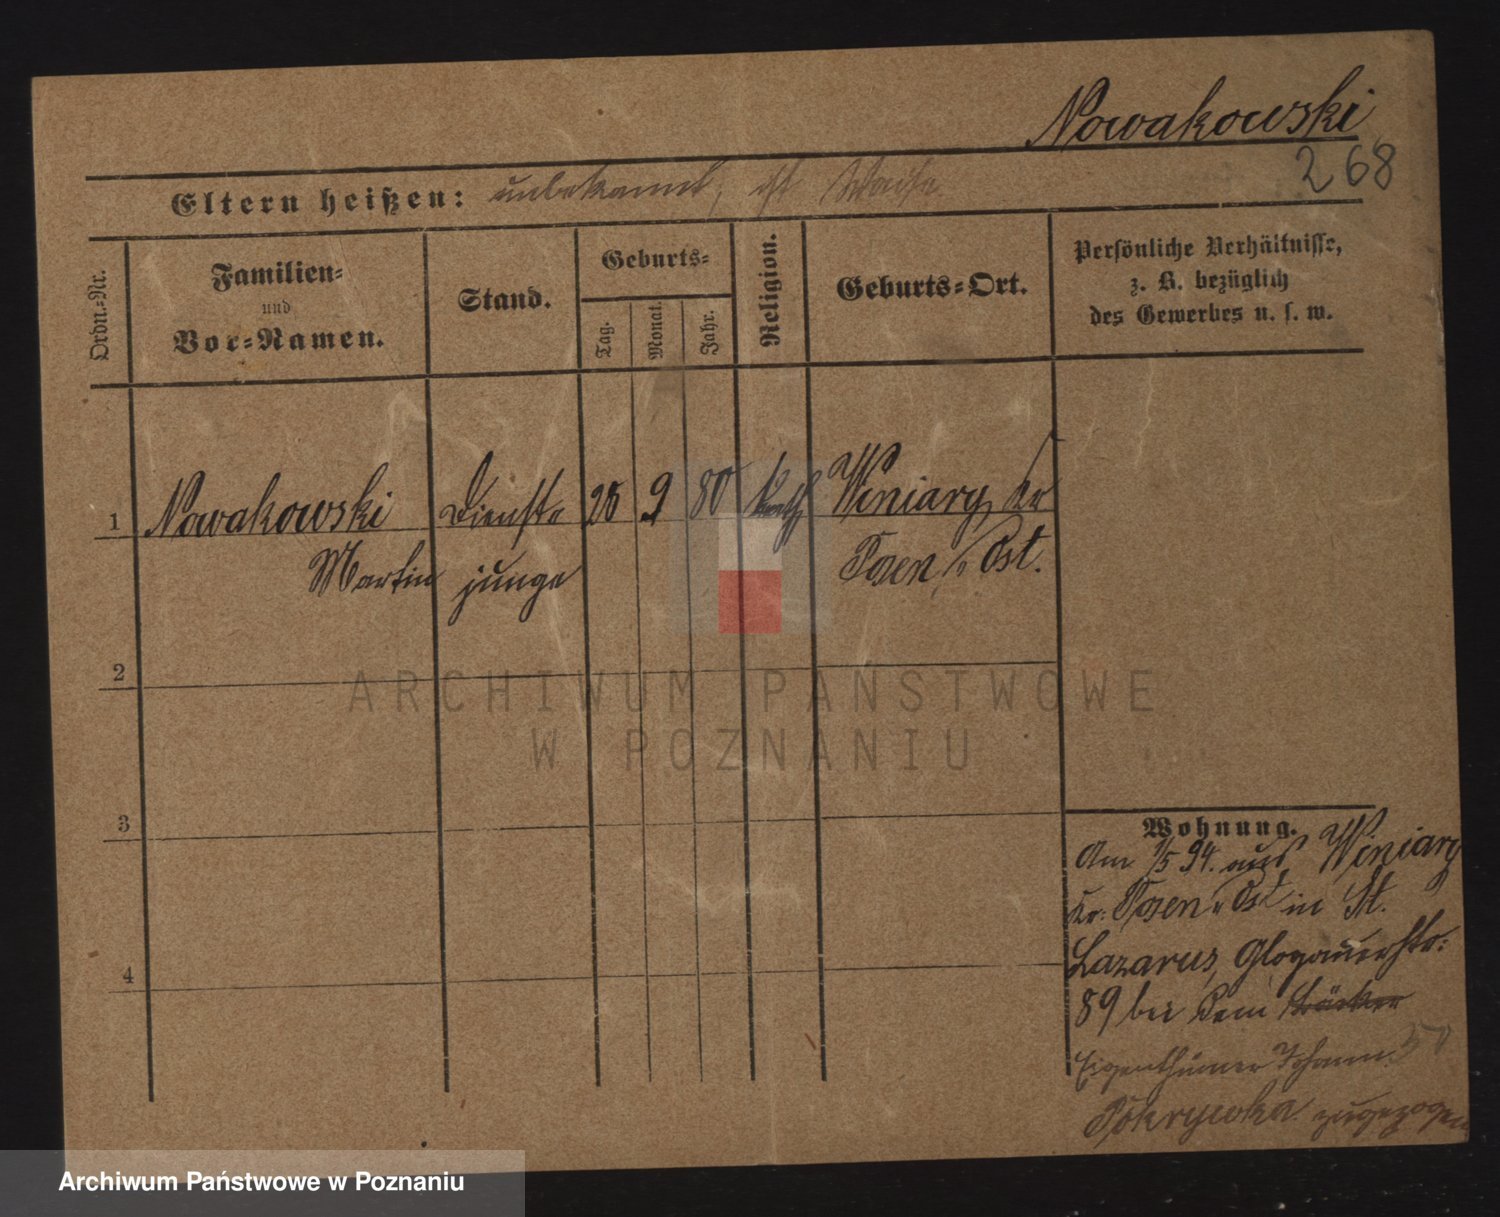 Nowakowski
268
Eltern heißen: unbekannt, ist Waise
Ordn.-Nr.
Familien-
und
Vor-Namen.
Stand.
Geburts-
Tag.
Monat.
Jahr.
Religion.
Geburts-Ort.
Persönliche Verhältnisse,
z. B. bezüglich
des Gewerbes u. s. w.
1 Nowakowski Dienst- 9 80 kath Winiary Kr
Martin junge Posen, Ost.
2
3
4
Wohnung.
Am 1/5 94. aus Winiary
Kr: Posen Ost in St.
Lazarus, Glogauerstr:
89 bei dem Bäcker
Eigenthümer Johann
Pokrywka zugezogen
ARCHIWUM PAŃSTWOWE
W POZNANIU
Archiwum Państwowe w Poznaniu